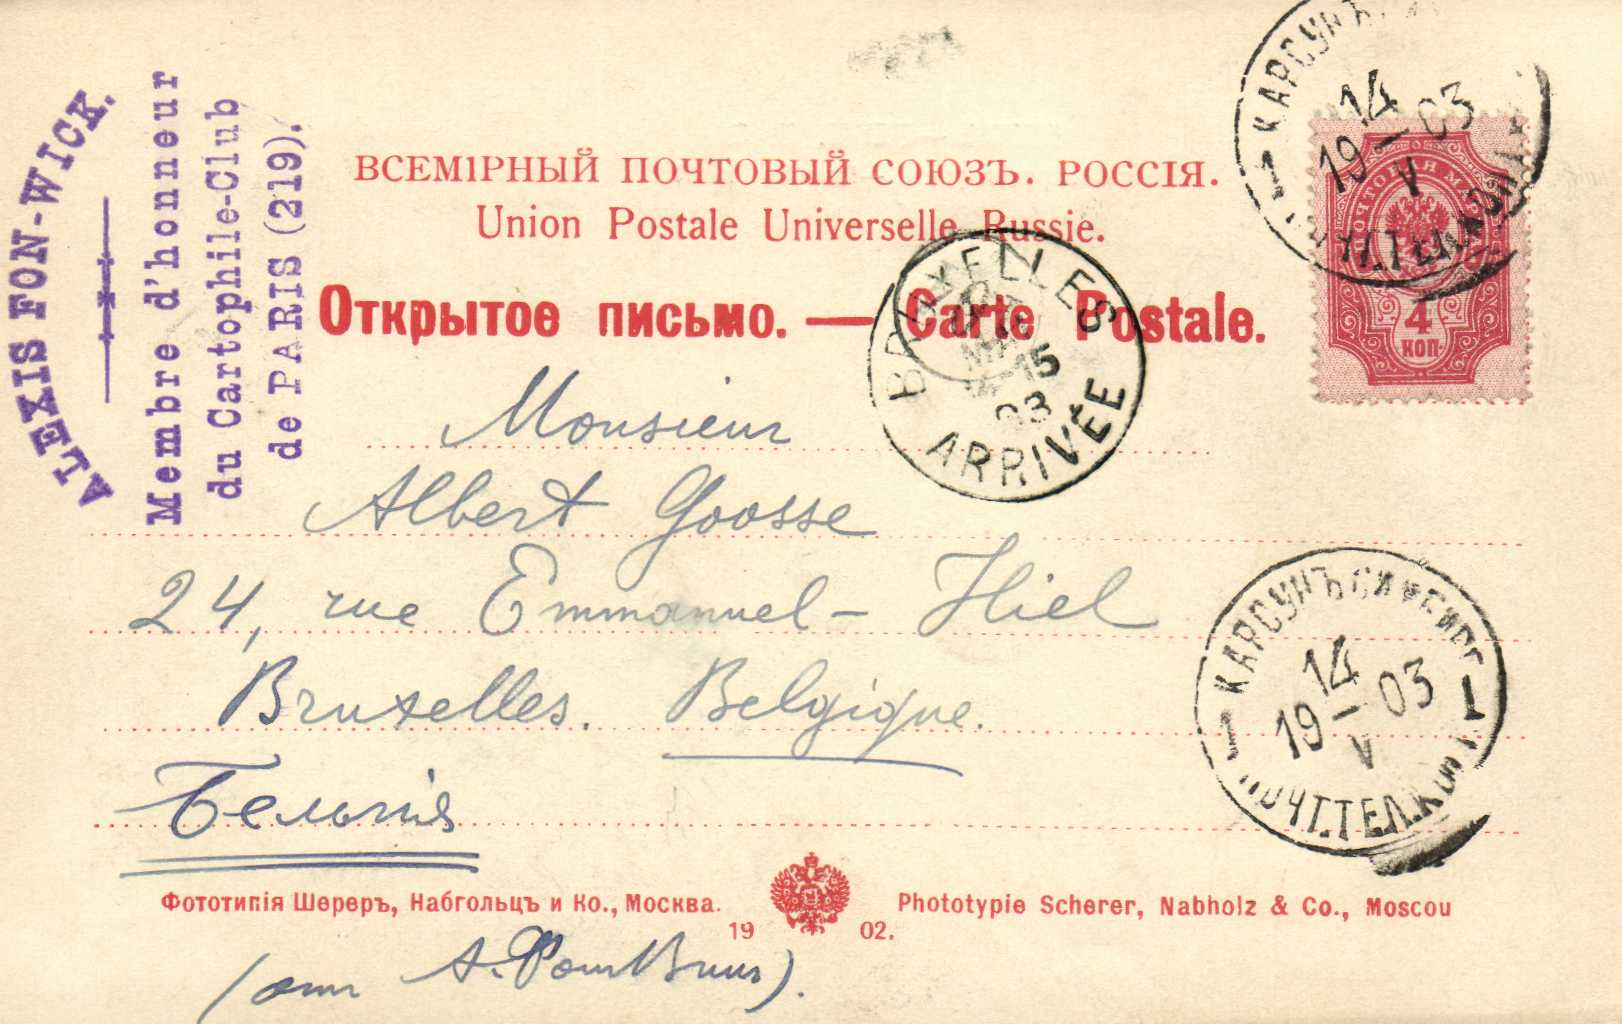 ALEXIS FON-WICK.
Membre d'honneur
du Cartophile-Club
de PARIS (219).
ВСЕМІРНЫЙ ПОЧТОВЫЙ СОЮЗЪ. РОССІЯ.
Union Postale Universelle Russie.
Открытое письмо. — Carte Postale.
КАРСУНЪ
14
19 — 03
V
ПОЧТОВАЯ МАРКА
4
КОП.
BRUXELLES
15
03
ARRIVÉE
Monsieur
Albert Goosse
24, rue Emmanuel - Hiel
Bruxelles. Belgique.
Бельгія
КАРСУНЪ СИМБИРГ
14
19 — 03
V
1 ПОЧТ.ТЕЛ.КОН 1
Фототипія Шереръ, Набгольцъ и Ко., Москва.
Phototypie Scherer, Nabholz & Co., Moscou
19 02.
(отъ А.